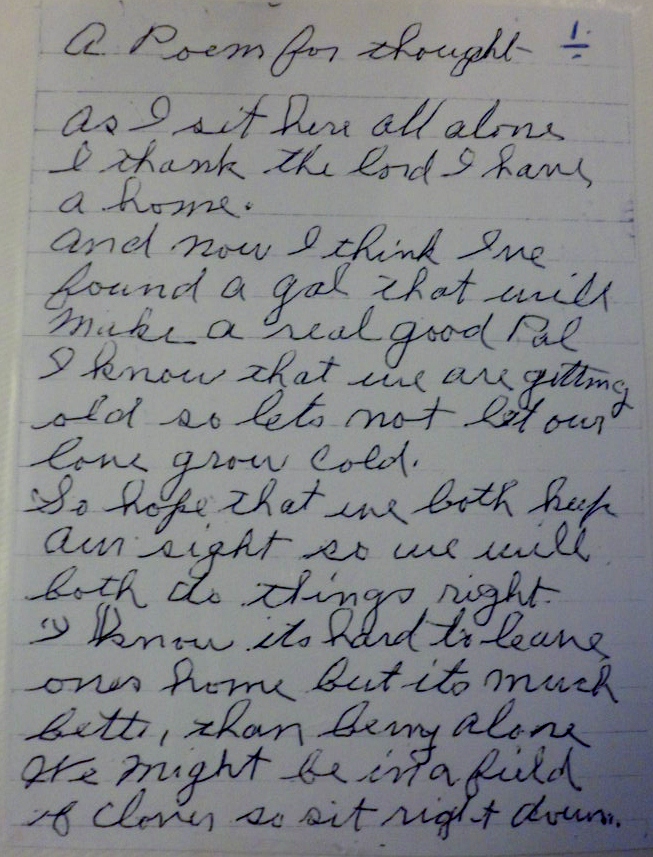 A Poem for thought 1.
As I sit here all alone
I thank the lord I have
a home.
And now I think Ive
found a gal that will
Make a real good Pal
I know that we are getting
old so lets not let our
love grow cold.
So hope that we both keep
our sight so we will
both do things right.
I know its hard to leave
ones home but its much
better, than being alone
We might be in a field
of clover so sit right down.